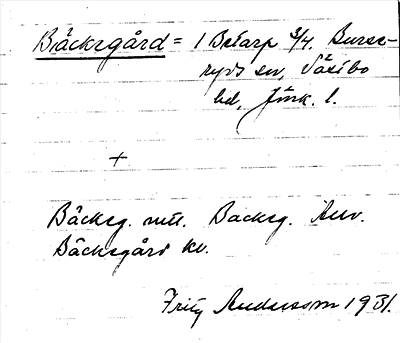 Bäcksgård = 1 Botarp 3/4. Burse-
ryds sn, Västbo
hd, Jönk. l.
+
Bäcksg. mtl. Backsg. Anv.
Bäcksgård kv.
Fritz Andersson 1931.